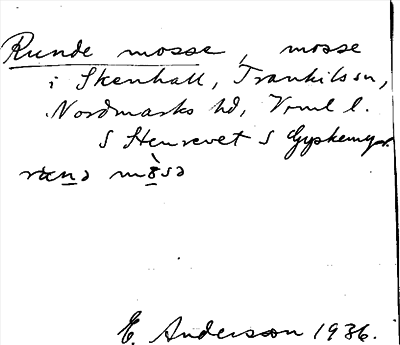 Runde mosse, mosse
i Skenhall, Trankils sn,
Nordmarks hd, Vrml l.
S Stenrevet S Gypkemyr.
rɯnə mòsə
E. Anderson 1936.